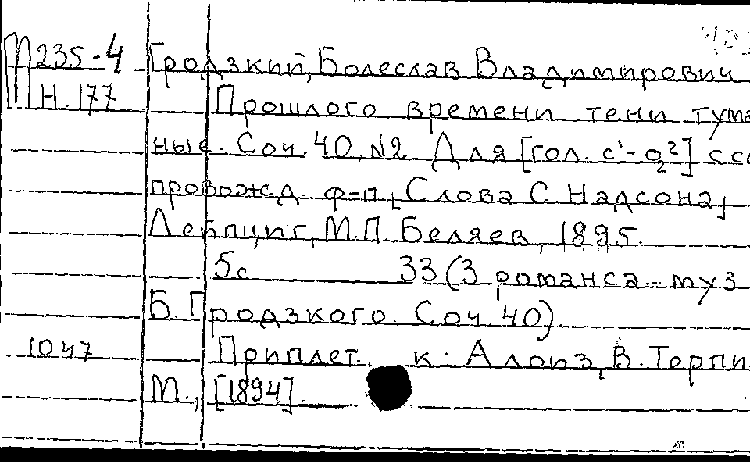 М 235-4 Гродзкий, Болеслав Владимирович
Н. 177 Прошлого времени тени тума
ные. Соч. 40, №2. Для [гол. c¹-g²] с со
провожд. ф-п. Слова С. Надсона,
Лейпциг, М.П. Беляев, 1895.
5с 33 (3 романса - муз
Б. Гродзкого. Соч. 40)
1047 Приплет. к: Алоиз, В. Терпи
М., [1894]